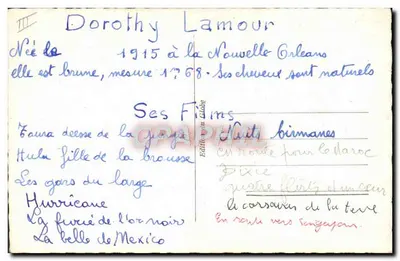 III
Dorothy Lamour
Née le 1915 à la Nouvelle Orleans
elle est brune, mesure 1m68. Ses cheveux sont naturels
Ses Films
Toura deesse de la jungle
Hula fille de la brousse
Les gars du large
Hurricane
La furie de l'or noir
La belle de Mexico
Editions du Globe
Nuits birmanes
En route pour le Maroc
DIXIE
quatre flirts et un cœur
le corsaire de la terre
En route vers Singapour